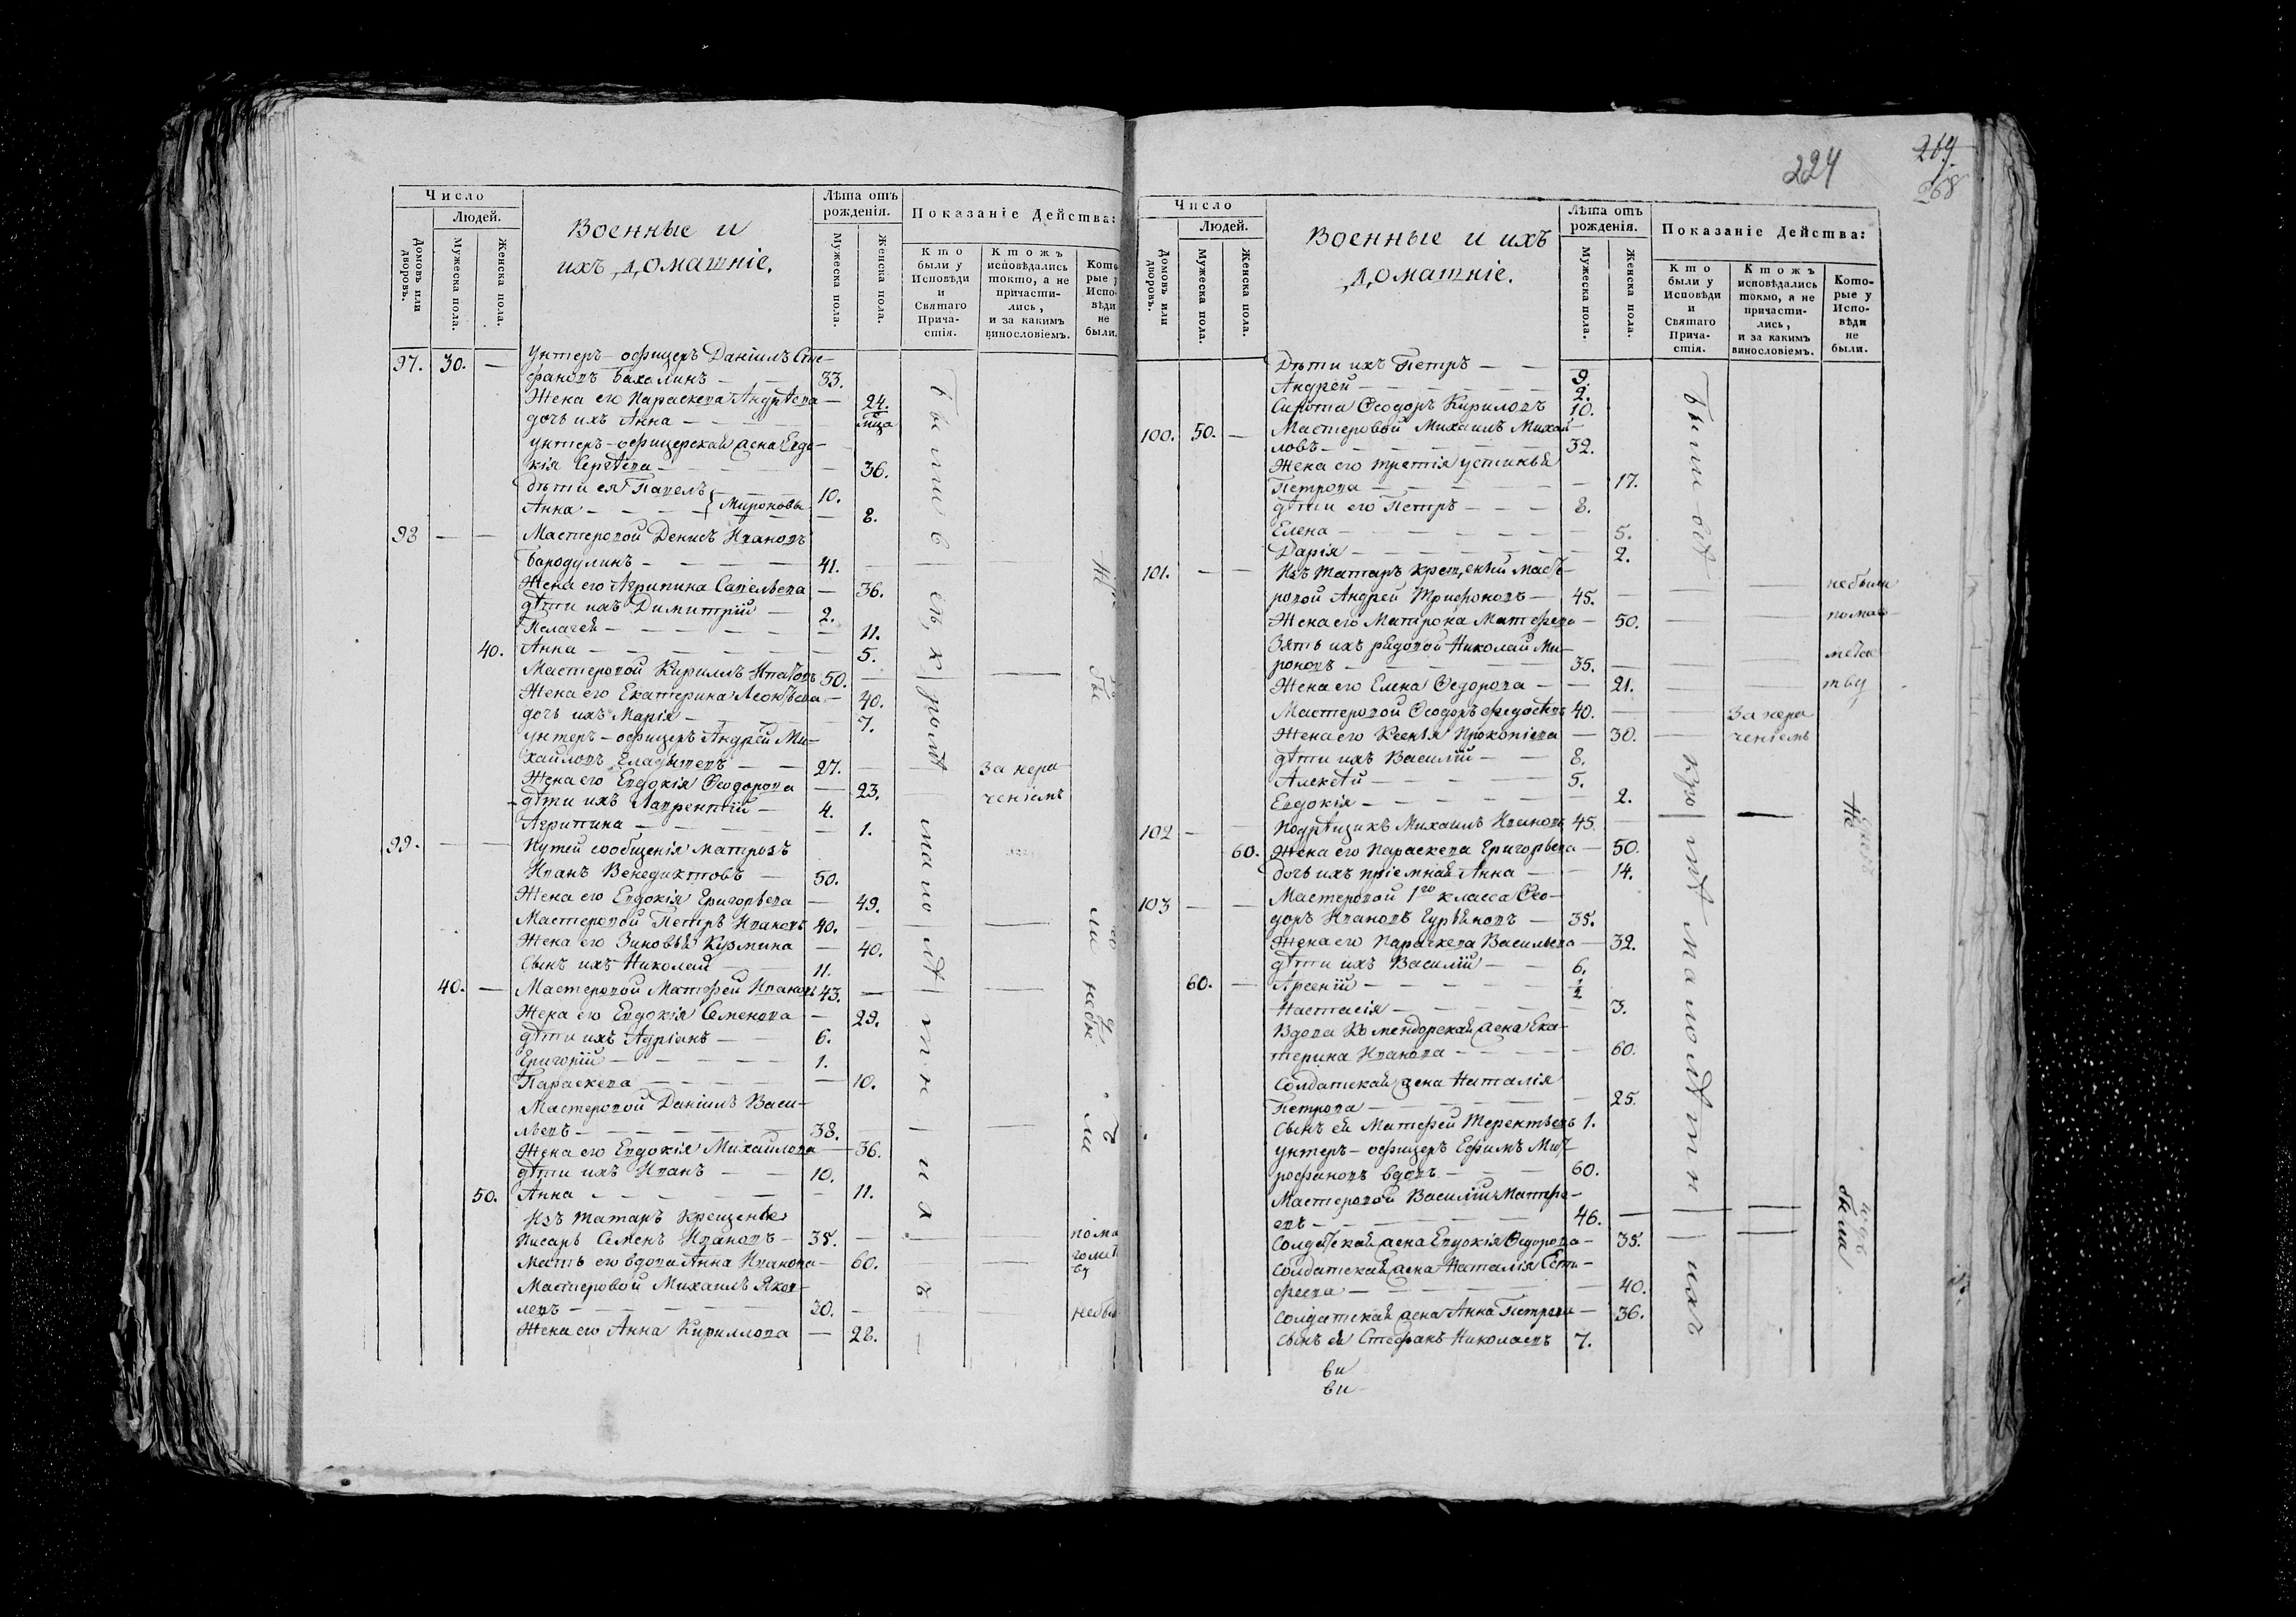 Число
Людей.
Домовъ или дворовъ.
Мужеска пола.
Женска пола.
Военные и
ихъ домашніе.
Лѣта отъ рожденія.
Мужеска пола.
Женска пола.
Показаніе Действа:
Кто были у Исповѣди и Святаго Причастія.
Ктожъ исповѣдались токмо, а не причастились, и за какимъ винословіемъ.
Которые у Исповѣди не были.
97. 30. — Унтеръ-офицеръ Даніилъ Сте-
фановъ Бахолинъ — 33.
Жена его Параскева Андрѣева — 24.
дочь ихъ Анна —
унтеръ-офицерская жена Евдо-
кія Сергѣева — 36.
дѣти ея Павелъ } Мироновы 10.
Анна — 8.
98 — — Мастеровой Денисъ Ивановъ
Бородулинъ — 41.
Жена его Агрипина Савельева — 36.
дѣти ихъ Димитрій — 2.
Пелагея — 11.
40. Анна — 5.
Мастеровой Кириллъ Игнатовъ 50.
Жена его Екатерина Леонтьева — 40.
дочь ихъ Марія — 7.
унтеръ-офицеръ Андрей Ми-
хайловъ — 27. — за нера-
Жена его Евдокія Ѳеодорова — 23. ченіемъ
дѣти ихъ Лаврентій — 4.
Агрипина — 1.
99. — — Путей сообщенія матрозъ
Иванъ Венедиктовъ — 50.
Жена его Евдокія Григорьева — 49.
Мастеровой Петръ Ивановъ 40. —
Жена его Зиновья Кузмина — 40.
Сынъ ихъ Николай — 11.
40. — Мастеровой Матфей Ивановъ 43. —
Жена его Евдокія Семенова — 29.
дѣти ихъ Адріанъ — 6.
Григорій — 1.
Параскева — 10.
Мастеровой Даніилъ Васи-
льевъ — 38.
Жена его Евдокія Михайлова — 36.
дѣти ихъ Иванъ — 10.
50. Анна — 11.
Изъ татаръ крещеные
Писарь Семенъ Ивановъ — 35. —
Мать его вдова Анна Иванова — 60.
Мастеровой Михаилъ Яков-
левъ — 30. —
Жена его Анна Кириллова — 28.
224
269.
268
Число
Людей.
Домовъ или дворовъ.
Мужеска пола.
Женска пола.
Военные и ихъ
домашніе.
Лѣта отъ рожденія.
Мужеска пола.
Женска пола.
Показаніе Действа:
Кто были у Исповѣди и Святаго Причастія.
Ктожъ исповѣдались токмо, а не причастились, и за какимъ винословіемъ.
Которые у Исповѣди не были.
Дѣти ихъ Петръ — 9.
Андрей — 2.
Сирота Ѳеодоръ Кириловъ 10.
100. 50. — Мастеровой Михаилъ Михай-
ловъ — 32.
Жена его третія Устинья
Петрова — 17.
дѣти его Петръ — 8.
Елена — 5.
Дарія — 2.
101. — — Изъ татаръ крещеный масте-
ровой Андрей Трифоновъ — 45. — небыли
Жена его Матрона Матфеева — 50. — помаг-
Зять ихъ рядовой Николай Ми-
роновъ — 35. —
Жена его Елена Ѳедорова — 21. — тву
Мастеровой Ѳеодоръ Федосѣевъ 40. — за нера
Жена его Ксенія Прокопіева — 30. — ченіемъ
дѣти ихъ Василій — 8.
Алексѣй — 5.
Евдокія — 2.
102 — — Подрѣщикъ Михаилъ Ивановъ 45. —
60. Жена его Параскева Григорьева — 50.
дочь ихъ пріемная Анна — 14.
103 — — Мастеровой 1го класса Ѳео-
доръ Ивановъ Гурьяновъ — 35.
Жена его Параскева Васильева — 32.
дѣти ихъ Василій — 6.
60. — Арсеній — ½
Настасія — 3.
Вдова Комендорская жена Ека-
терина Иванова — 60.
Солдатская жена Наталія
Петрова — 25.
Сынъ ея Матфей Терентьевъ 1.
унтеръ-офицеръ Ефимъ Мит-
рофановъ вдовъ — 60.
Мастеровой Василій Матфе-
евъ — 46. —
Солдатская жена Евдокія Ѳедорова — 35.
Солдатская жена Наталія Естиг-
феева — 40.
Солдатская жена Анна Петрова — 36.
Сынъ ея Стефанъ Николаевъ 7.
ви
ви